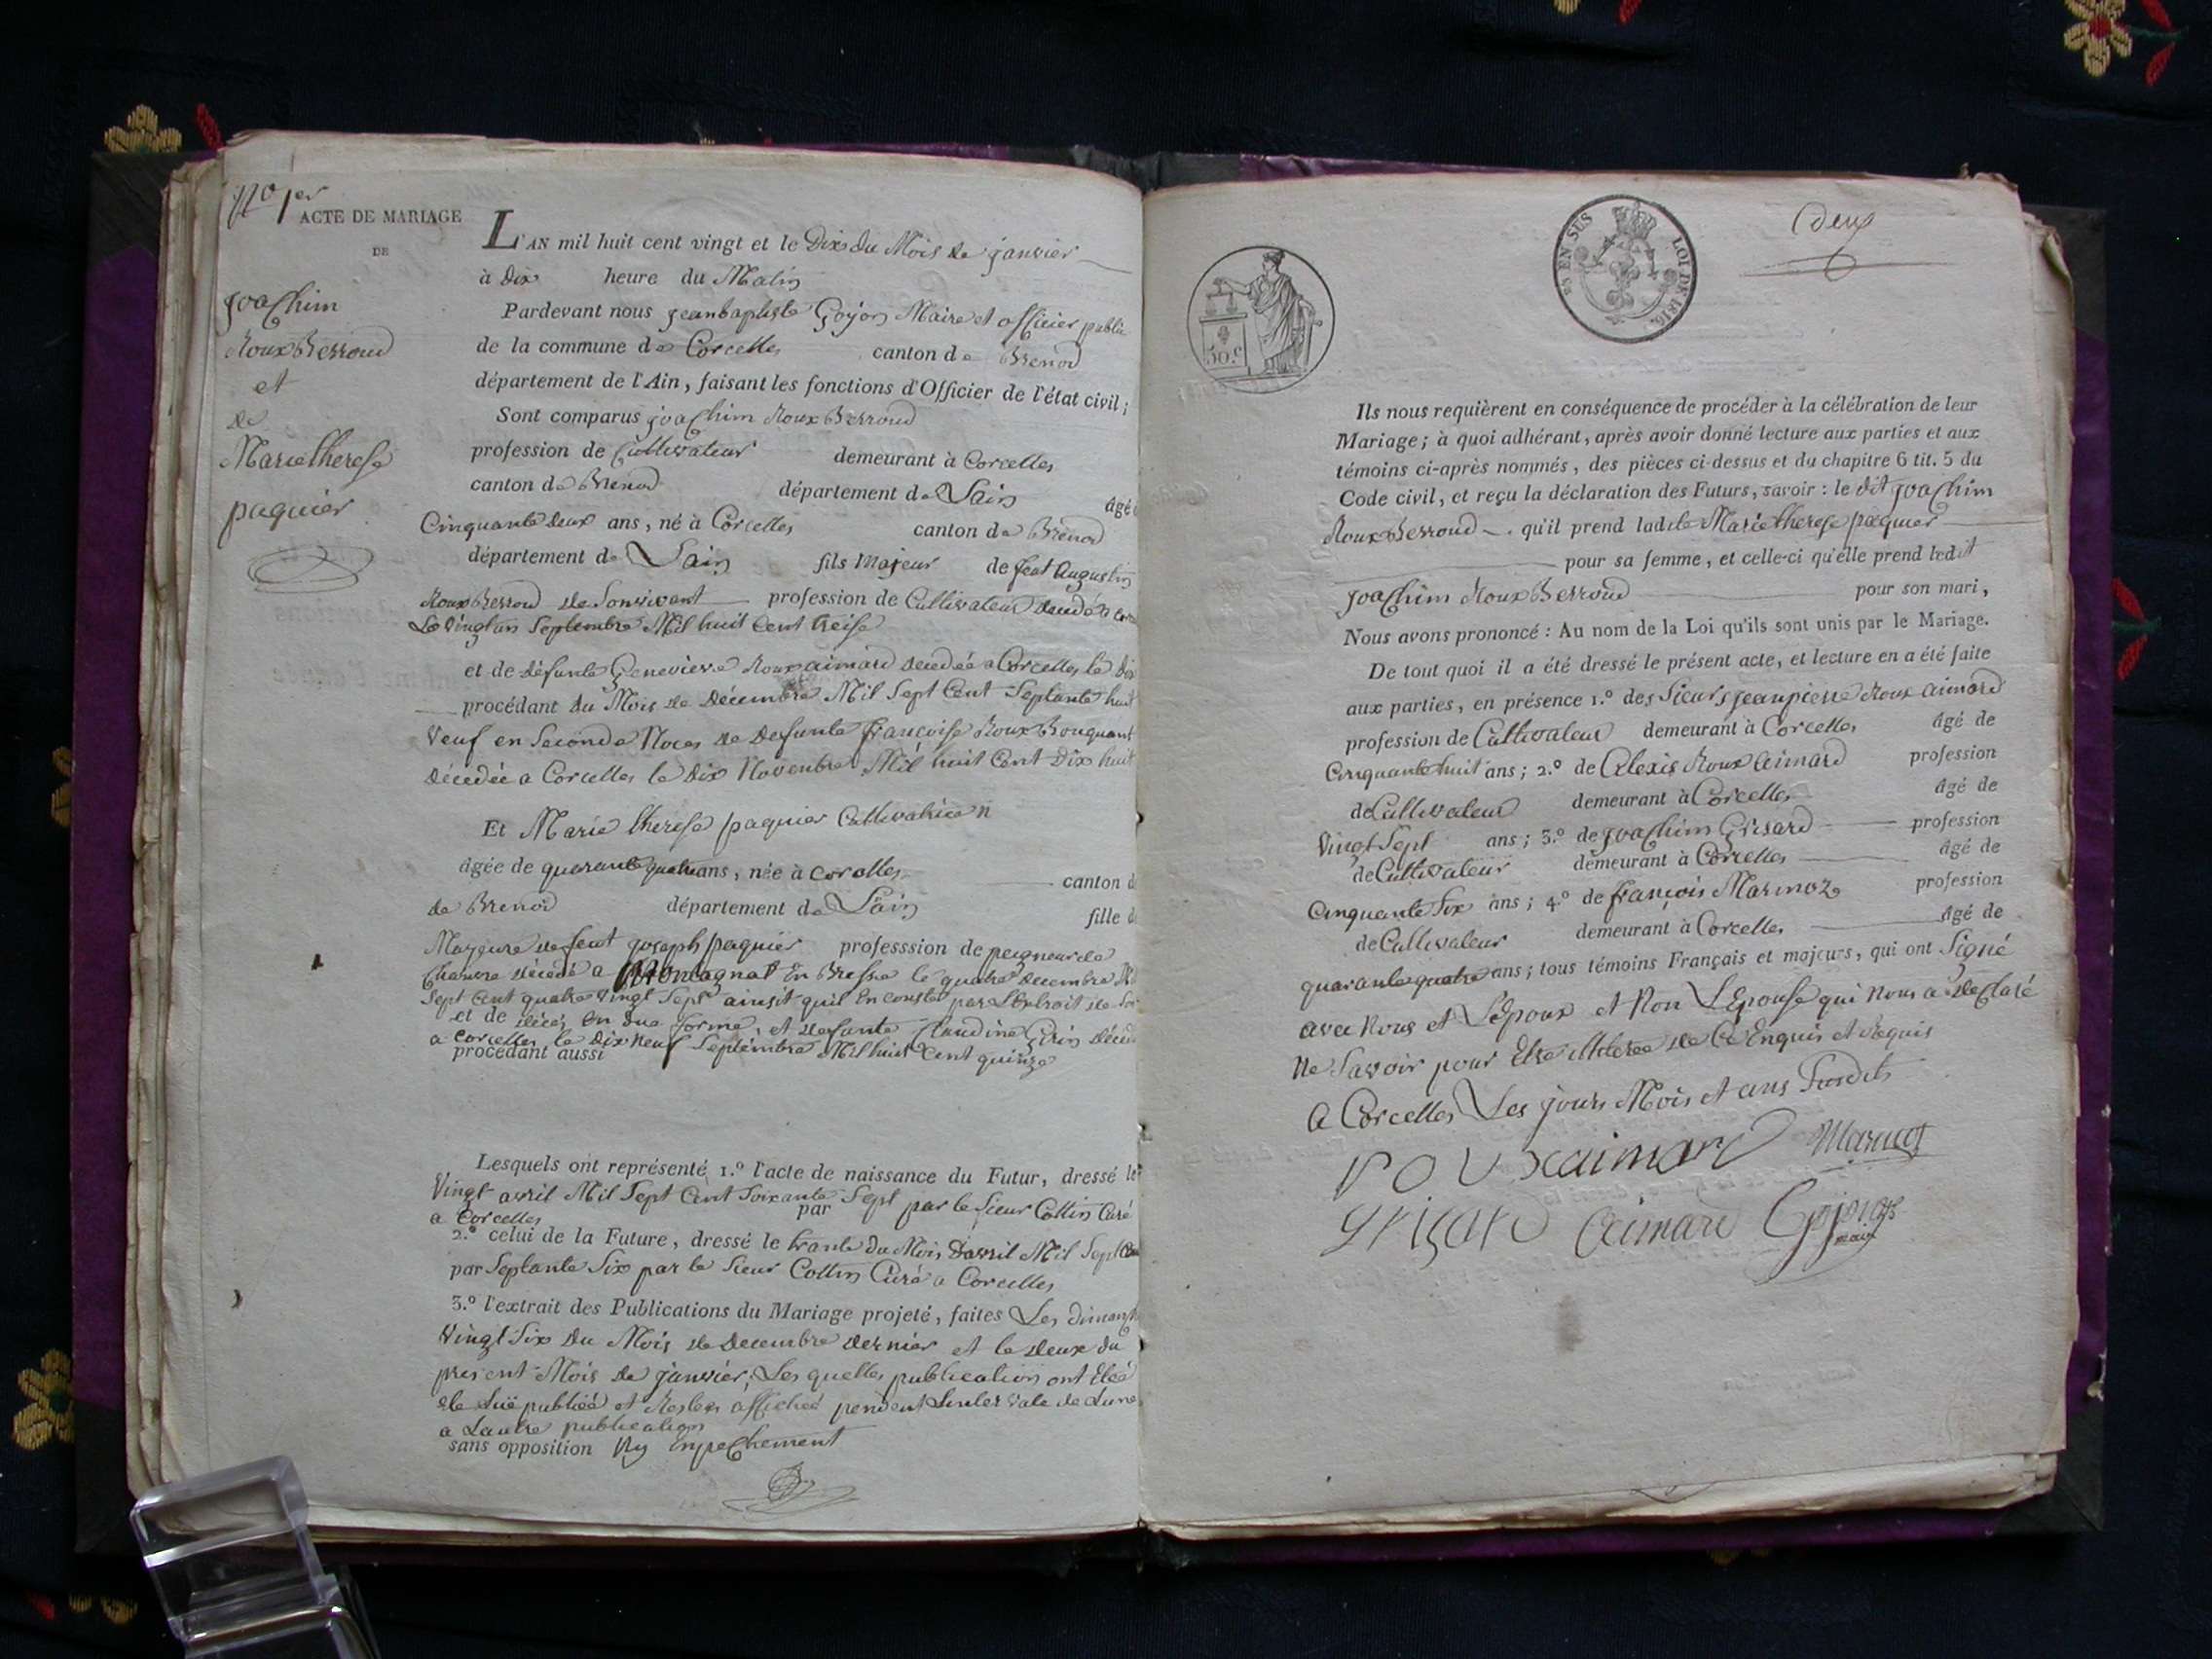 No 1er
ACTE DE MARIAGE
DE
joachim
Roux Berroud
et
de
Marie therese
paquier
L'AN mil huit cent vingt et le Dix du Mois de janvier
à Dix heure du Matin
Pardevant nous jeanbaptiste Goyon Maire et officier public
de la commune de Corcelles canton de Brenod
département de l'Ain, faisant les fonctions d'Officier de l'état civil;
Sont comparus joachim Roux Berroud
profession de Cultivateur demeurant à Corcelles
canton de Brenod département de Lain âgé
Cinquante deux ans, né à Corcelles canton de Brenod
département de Lain fils Majeur de feut Augustin
Roux Berroud de Sonvivant profession de Cultivateur
Le vingt un Septembre Mil huit Cent treise
et de défunte Genevieve Roux aimard decedée a Corcelles le Dix
procédant du Mois de Décembre Mil Sept Cent Septante huit
Veuf en Seconde Noces de Defunte françoise Roux Bouquant
Décedée a Corcelles le Dix Novembre Mil huit Cent Dix huit
Et Marie therese paquier Cultivatrice
âgée de quarante quatre ans, née à Corcelles canton d
de Brenod département de Lain fille d
Mayeure de feut joseph paquier professsion de peigneur de
Chanvre décédé a Montagnat En Bresse le quatre Decembre
Sept Cent quatre Vingt Sept ainsit quil En Conste par L'Extrait de
et de décés En due forme, et defunte Claudine Girin
a Corcelles le Dix Neuf Septembre Mil huit Cent quinze
procédant aussi
Lesquels ont représenté, 1.º l'acte de naissance du Futur, dressé le
Vingt avril Mil Sept Cent Soixante Sept par le Sieur Collin Curé
a Corcelles par
2.º celui de la Future, dressé le trante du Mois Davril Mil Sept Cent
par Septante Six par le Sieur Collin Curé a Corcelles
3.º l'extrait des Publications du Mariage projeté, faites Les dimanch
Vingt Six Du Mois de Decembre dernier et le deux du
present Mois de janvier, Les quelles publication ont Eté
publiée et affiché pendent Lintervale de Lune
a Lautre publication
sans opposition Ny Enpechement
deux
ES EN SUS
LOI DE 1816.
50.c
Ils nous requièrent en conséquence de procéder à la célébration de leur
Mariage; à quoi adhérant, après avoir donné lecture aux parties et aux
témoins ci-après nommés, des pièces ci-dessus et du chapitre 6 tit. 5 du
Code civil, et reçu la déclaration des Futurs, savoir: le dit joachim
Roux Berroud qu'il prend ladite Marie therese paquier
pour sa femme, et celle-ci qu'elle prend ledit
joachim Roux Berroud pour son mari,
Nous avons prononcé: Au nom de la Loi qu'ils sont unis par le Mariage.
De tout quoi il a été dressé le présent acte, et lecture en a été faite
aux parties, en présence 1.º des Sieurs jeanpierre Roux aimard
profession de Cultivateur demeurant à Corcelles âgé de
Cinquante huit ans; 2.º de Alexis Roux aimard profession
de Cultivateur demeurant à Corcelles âgé de
Vingt Sept ans; 3.º de joachim Grisard profession
de Cultivateur demeurant à Corcelles âgé de
Cinquante Six ans; 4.º de françois Marinoz profession
de Cultivateur demeurant à Corcelles âgé de
quarante quatre ans; tous témoins Français et majeurs, qui ont Signé
avec Nous et L'Epoux et Non L'Epouse qui Nous a declaré
Ne Savoir pour de Ce Enquis et Requis
A Corcelles Les jours Mois et ans Susdits
roux aimard
grisard aimard Goyon
maire